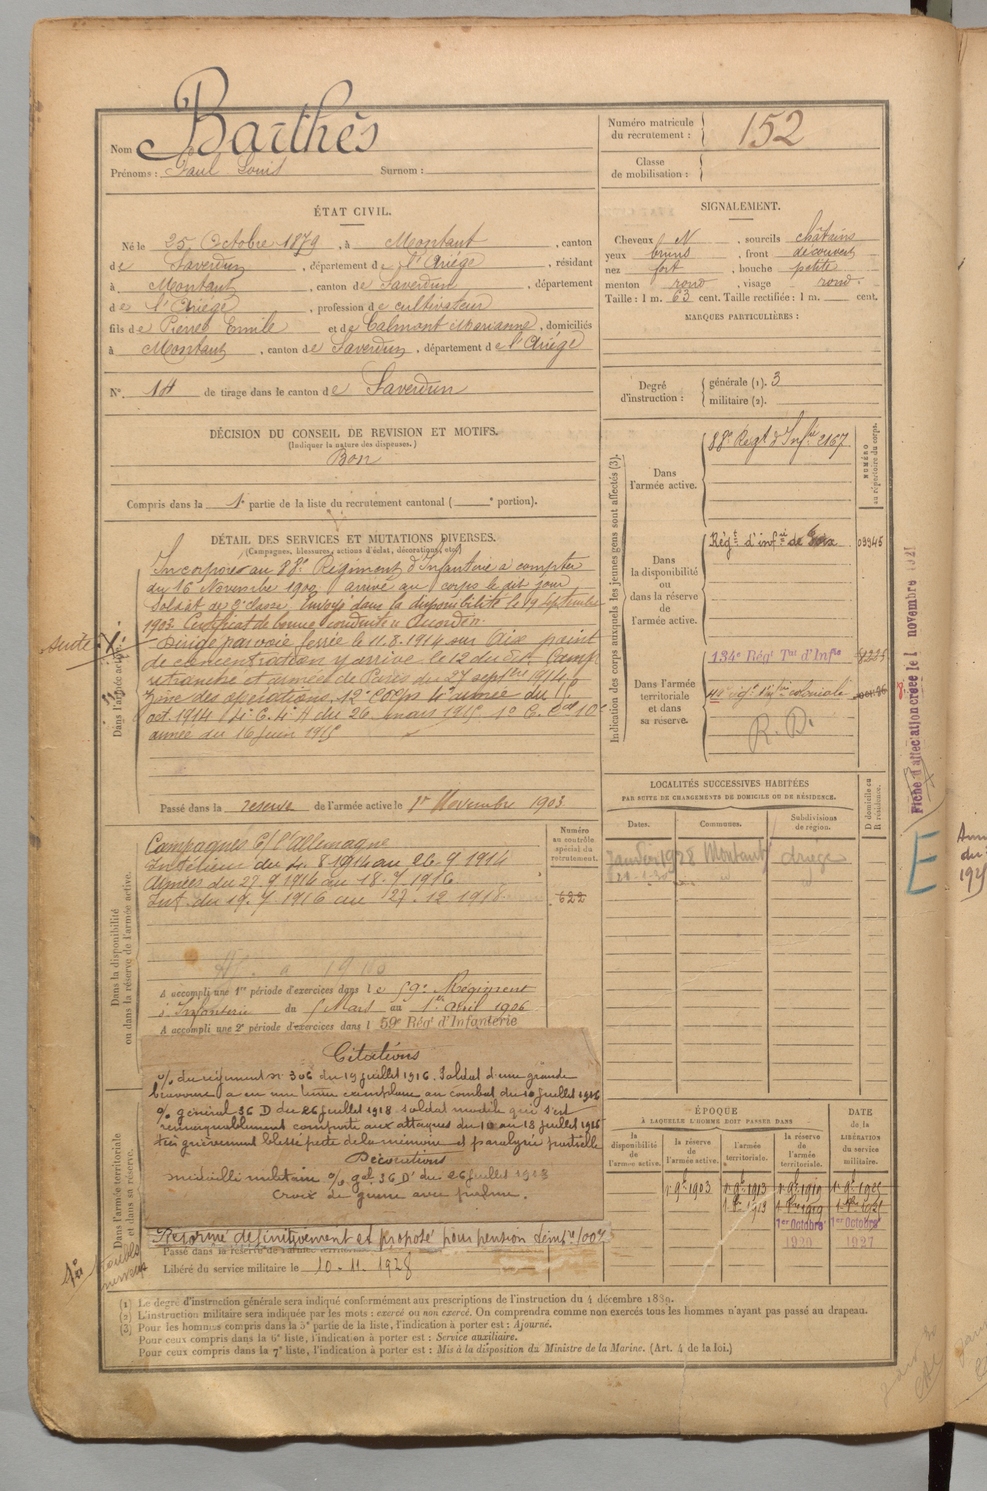 Nom Barthés
Prénoms : Paul Louis Surnom :
Numéro matricule du recrutement : 152
Classe de mobilisation :
ÉTAT CIVIL.
Né le 25 Octobre 1879, à Montaut, canton
de Saverdun, département de l'Ariége, résidant
à Montaut, canton de Saverdun, département
de l'Ariége, profession de cultivateur
fils de Pierre Emile et de Calmont Marianne, domiciliés
à Montaut, canton de Saverdun, département de l'Ariége
N° 14 de tirage dans le canton de Saverdun
SIGNALEMENT.
Cheveux N, sourcils châtains
yeux bruns, front découvert
nez fort, bouche petite
menton rond, visage rond.
Taille : 1 m. 63 cent. Taille rectifiée : 1 m. cent.
MARQUES PARTICULIÈRES :
Degré d'instruction : générale (1). 3
militaire (2).
DÉCISION DU CONSEIL DE REVISION ET MOTIFS.
(Indiquer la nature des dispenses.)
Bon
Compris dans la 1e partie de la liste du recrutement cantonal ( e portion).
DÉTAIL DES SERVICES ET MUTATIONS DIVERSES.
(Campagnes, blessures, actions d'éclat, décorations, etc.)
Incorporé au 88e Régiment d'Infanterie à compter
du 16 Novembre 1900 arrivé au corps le dit jour
soldat de 2e classe. Envoyé dans la disponibilité le 19 septembre
1903 Certificat de bonne conduite accordé.
Suite X
Dirigé par voie ferrée le 11.8.1914 sur Aix point
de concentration y arrive le 12 du dit. Camp
retranché et armée de Paris du 27 septbre 1914
Zone des opérations. 12e Corps 4e armée du
oct. 1914 4e C. 4e A du 26 mars 1915 10
armée du 16 juin 1915
Dans l'armée active.
Passé dans la reserve de l'armée active le 1er Novembre 1903
Indication des corps auxquels les jeunes gens sont affectés (3).
NUMÉRO au répertoire du corps.
Dans l'armée active. 88e Regt d'Infie 2167
Dans la disponibilité ou dans la réserve de l'armée active. Régt d'infie de Foix 03945
Dans l'armée territoriale et dans sa réserve. 134e Régt Tal d'Infie
infie coloniale
R. D.
Fiche d'affectation créée le 1 novembre
E
LOCALITÉS SUCCESSIVES HABITÉES
PAR SUITE DE CHANGEMENTS DE DOMICILE OU DE RÉSIDENCE.
Dates. Communes. Subdivisions de région. D domicile ou R résidence.
Janvier 1928 Montaut Ariege
Dans la disponibilité ou dans la réserve de l'armée active.
Numéro au contrôle spécial du recrutement.
622
Campagnes C/ l'Allemagne
Intérieur du 4.8 1914 au 26.9 1914
Armées du 27.9 1914 au 18.7 1916
Int. du 19.7 1916 au 27.12 1918
A accompli une 1re période d'exercices dans le 59e Régiment
d'Infanterie du 5 Mars au 1er Avril 1906
A accompli une 2e période d'exercices dans l 59e Régt d'Infanterie
Citations
o/ du régiment n° 306 du 19 juillet 1916. Soldat d'une grande
bravoure a eu une tenue exemplaire au combat du 10 juillet 1916
o/ général 36 D du 26 juillet 1918 soldat modèle qui s'est
remarquablement comporté aux attaques du 10 au 18 juillet 1916
très grièvement blessé perte de la mémoire et paralysie partielle
Décorations
médaille militaire o/ gal 36 D' du 26 juillet 1918
Croix de guerre avec palme.
Dans l'armée territoriale et dans sa réserve.
troubles nerveux
Réformé définitivement et proposé pour pension tempre 100%
Passé dans la réserve de l'armée territoriale
Libéré du service militaire le 10.11.1928
ÉPOQUE
À LAQUELLE L'HOMME DOIT PASSER DANS
DATE de la LIBÉRATION du service militaire.
la disponibilité de l'armée active. la réserve de l'armée active. l'armée territoriale. la réserve de l'armée territoriale.
1er 9bre 1903 1er 9bre 1913 1er 9bre 1919 1er 9bre 1925
1er Octobre 1920 1er Octobre 1927
(1) Le degré d'instruction générale sera indiqué conformément aux prescriptions de l'instruction du 4 décembre 1889.
(2) L'instruction militaire sera indiquée par les mots : exercé ou non exercé. On comprendra comme non exercés tous les hommes n'ayant pas passé au drapeau.
(3) Pour les hommes compris dans la 5e partie de la liste, l'indication à porter est : Ajourné.
Pour ceux compris dans la 6e liste, l'indication à porter est : Service auxiliaire.
Pour ceux compris dans la 7e liste, l'indication à porter est : Mis à la disposition du Ministre de la Marine. (Art. 4 de la loi.)